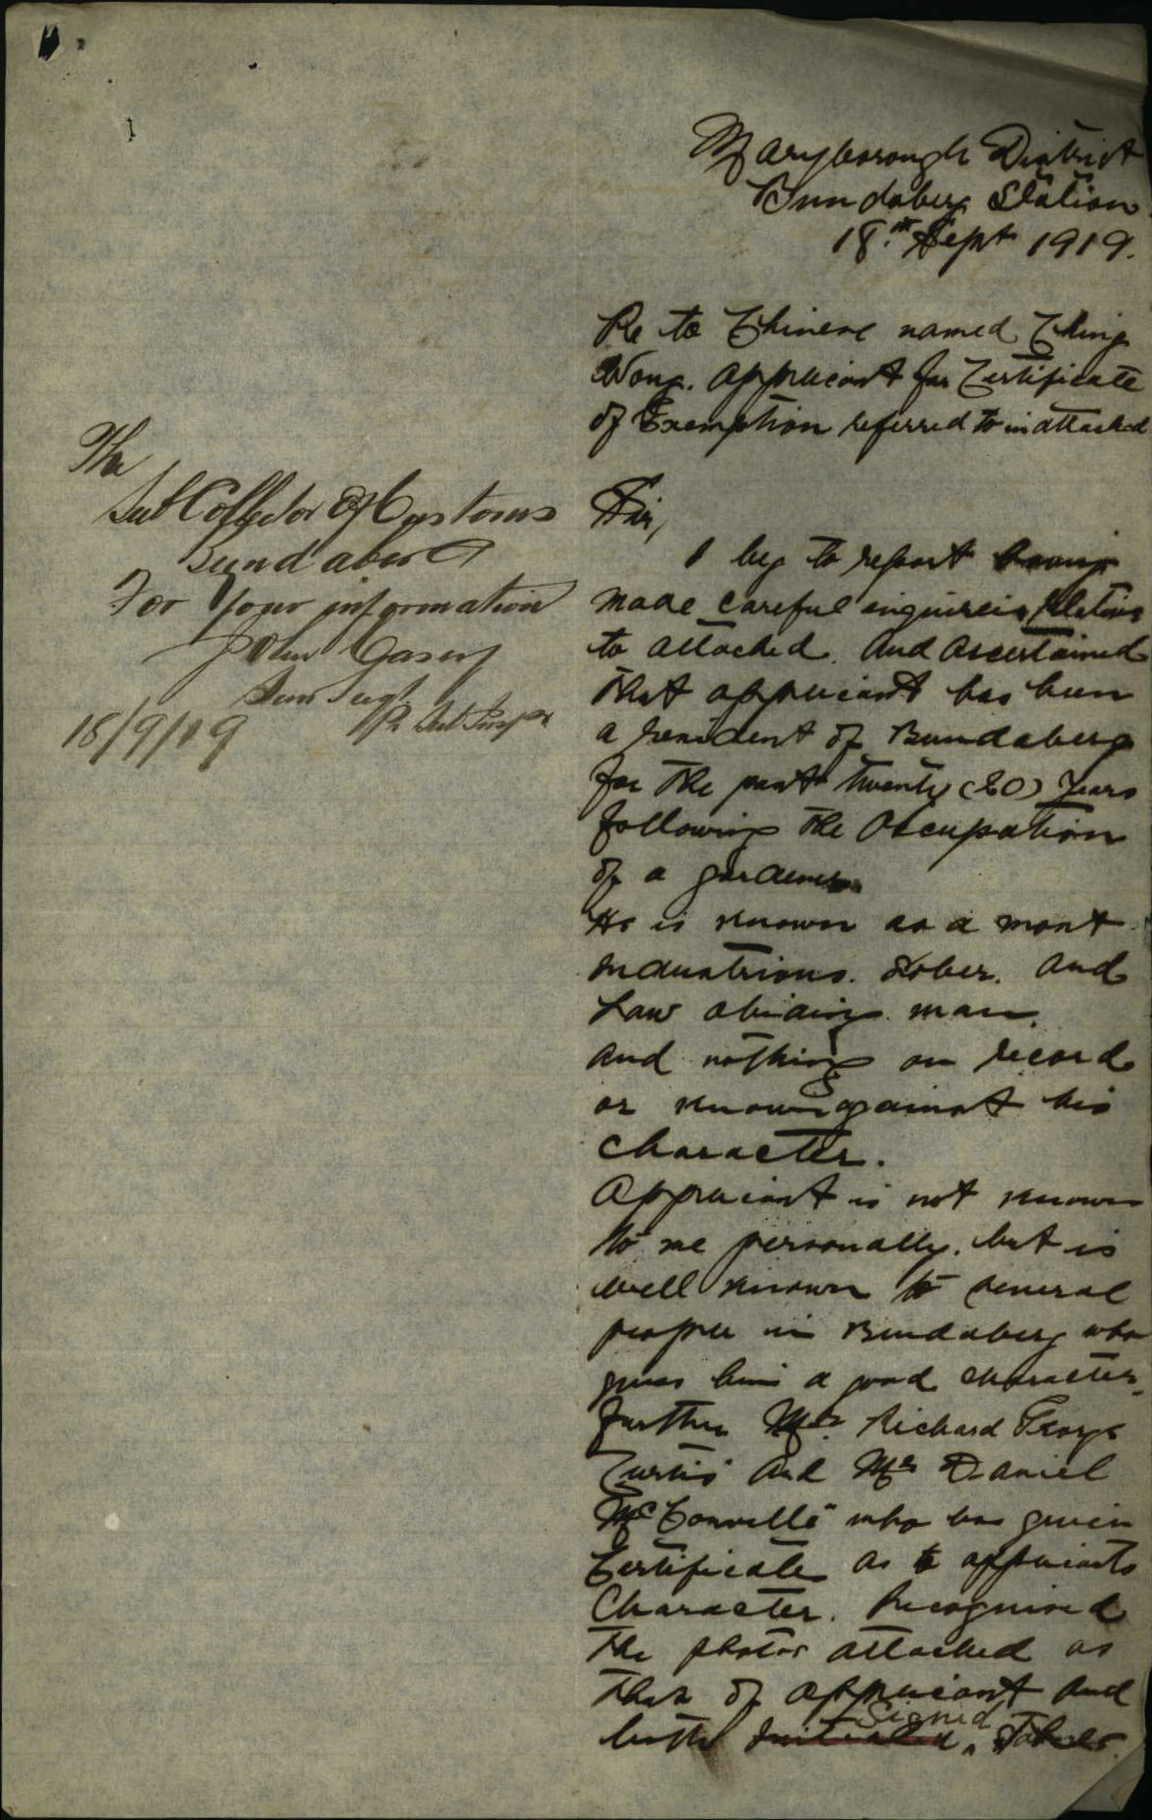 Maryborough District
Bundaberg Station
18th Sept 1919.
Re to Chinese named Ching
Wong. Applicant for Certificate
of Exemption referred to in attached
Sir,
I beg to report having
made careful inquiries relative
to attached. And ascertained
that applicant has been
a resident of Bundaberg
for the past twenty (20) years
following the Occupation
of a gardener
He is known as a most
industrious. Sober. And
Law abiding man.
And nothing on record
or known against his
Character.
Applicant is not known
to me personally. but is
well known to several
people in Bundaberg who
gives him a good character.
further Mr Richard George
Curtis and Mr Daniel
McConville who has given
Certificates as to applicants
Character. Recognised
the photos attached as
that of applicant and
both initialed Signed
The
Sub Collector Of Customs
Bundaberg
For your information
John Casey
Sen Sergt
18/9/19